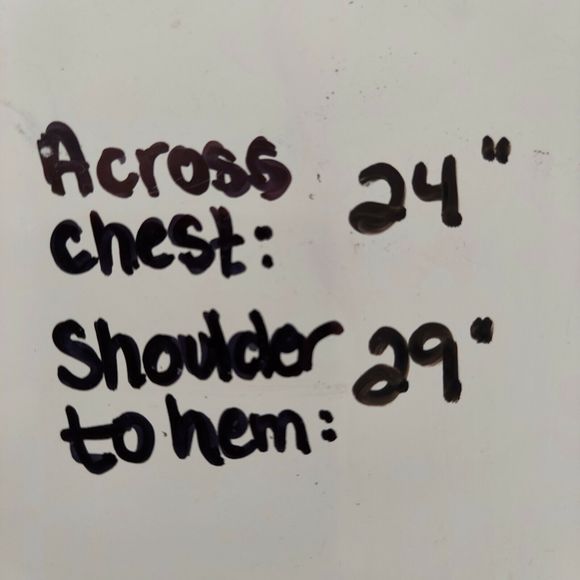 Across
chest: 24"
Shoulder 29"
to hem: